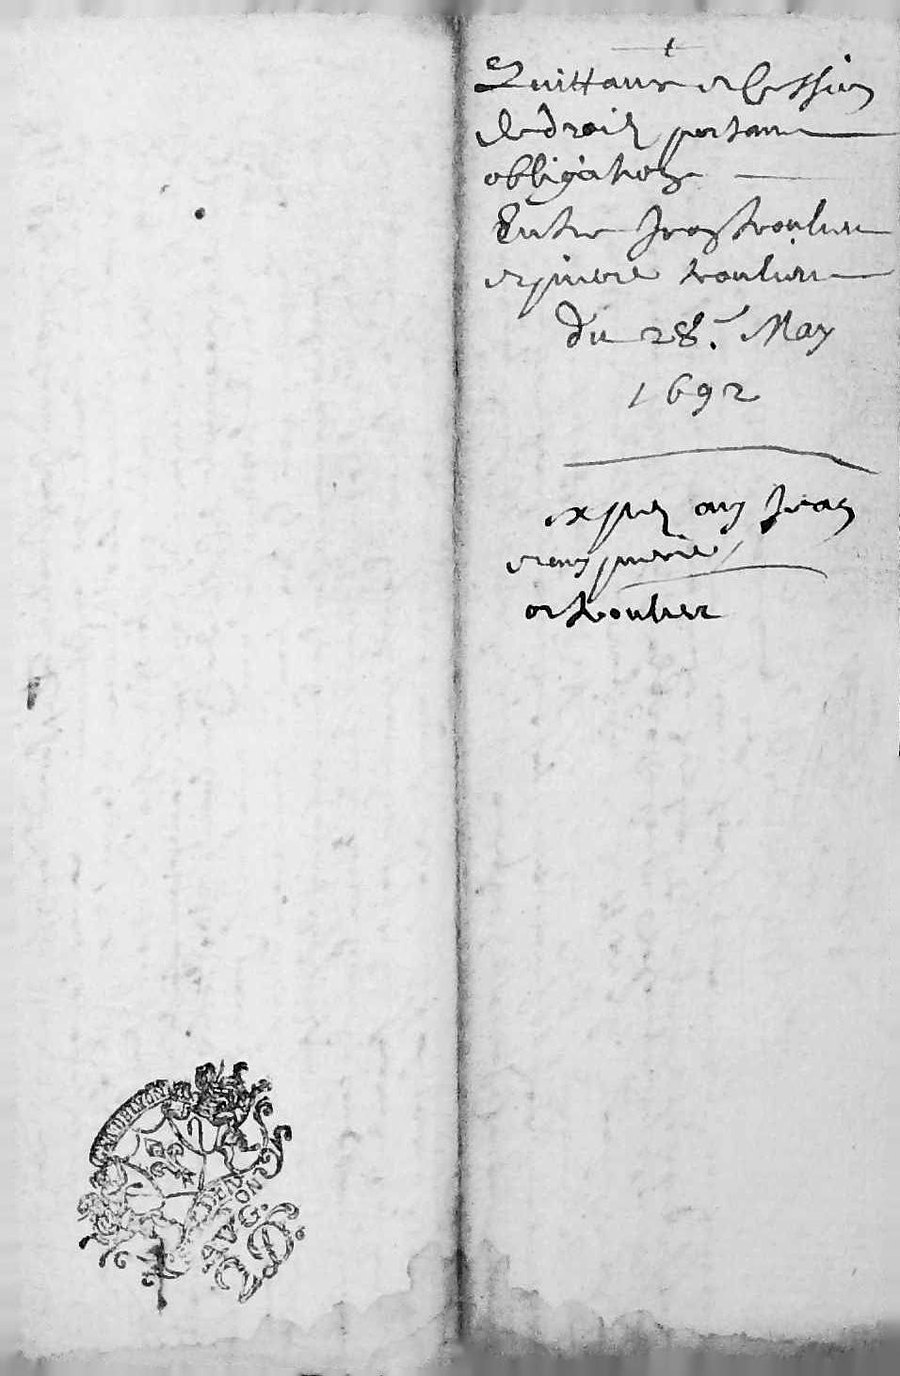 Quittance et Cession
de droit portant
obligation
Entre Jean troulier
et pierre troulier
du 28.e May
1692
expié aud Jean
et aud pierre
troulier